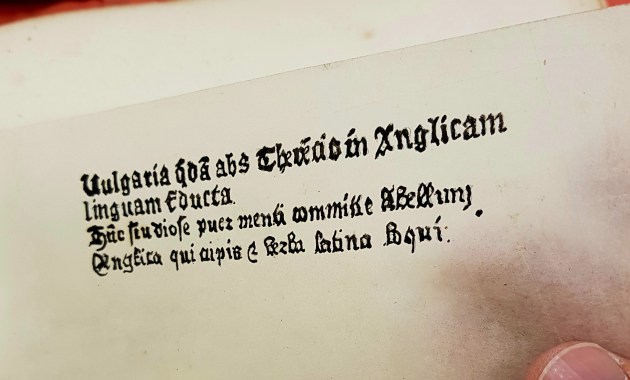 Uulgaria q̄dā abs Therēcio in Anglicam
linguam
Hūc studiose puer menti committe libellum
Anglica qui cupis & verba latina loqui: